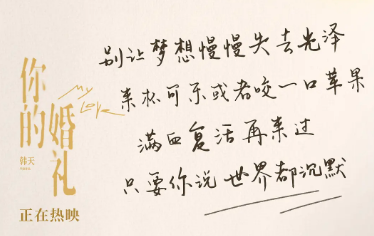 别让梦想慢慢失去光泽
来杯可乐或者咬一口苹果
满血复活再来过
只要你说 世界都沉默
你的婚礼
My Love
韩天
正在热映